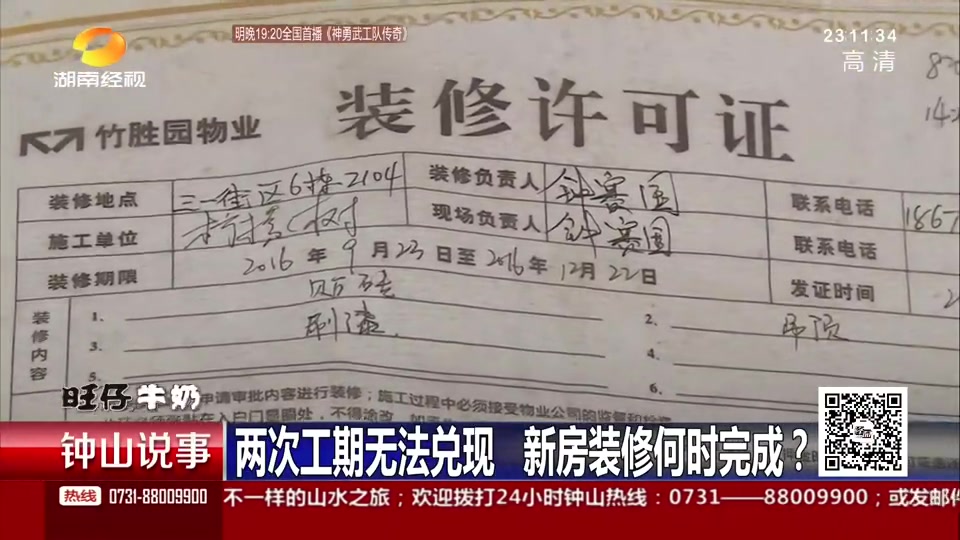 明晚19:20全国首播《神勇武工队传奇》
23:11:34
高清
湖南经视
竹胜园物业
装修许可证
装修地点 三一街区6栋2104 装修负责人 钟赛国 联系电话 1867
施工单位 现场负责人 钟赛国 联系电话
装修期限 2016年9月23日至2016年12月22日 发证时间 2
装修内容
1. 贴砖 2. 吊顶
3. 刷漆 4.
5. 6.
申请审批内容进行装修；施工过程中必须接受物业公司的监督和检查
旺仔牛奶
钟山说事
两次工期无法兑现 新房装修何时完成？
热线 0731-88009900 不一样的山水之旅；欢迎拨打24小时钟山热线：0731——88009900；或发邮件